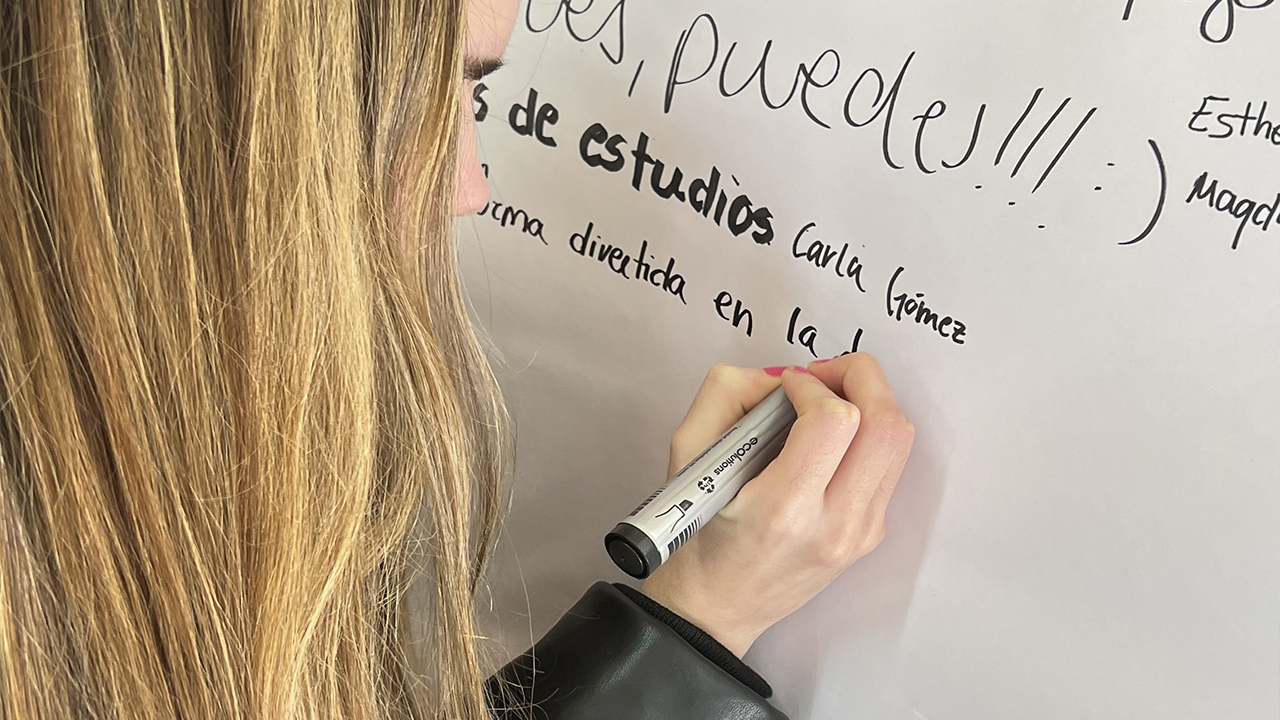 puedes!!! :)
Esthe
Magd
s de estudios Carla Gómez
divertida en la d
ecolutions